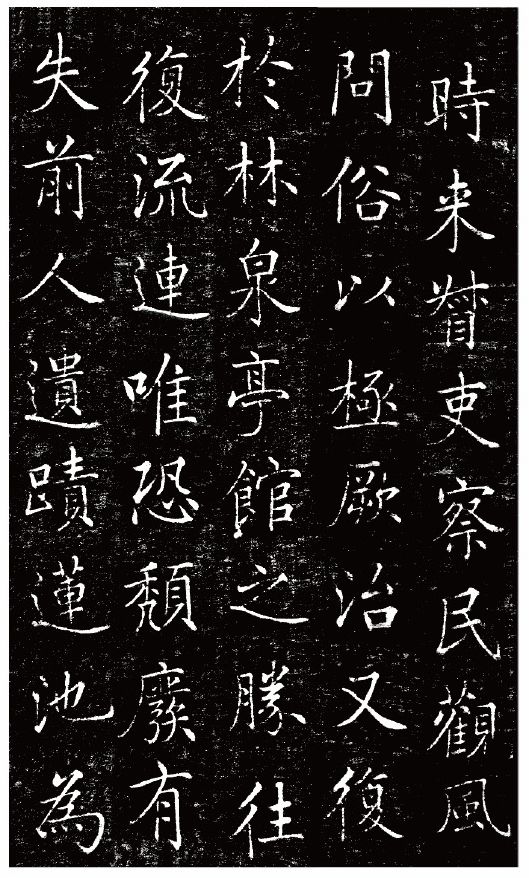 時来督吏察民觀風
問俗以極厥治又復
於林泉亭館之勝往
復流連唯恐頹廢有
失前人遺蹟蓮池為